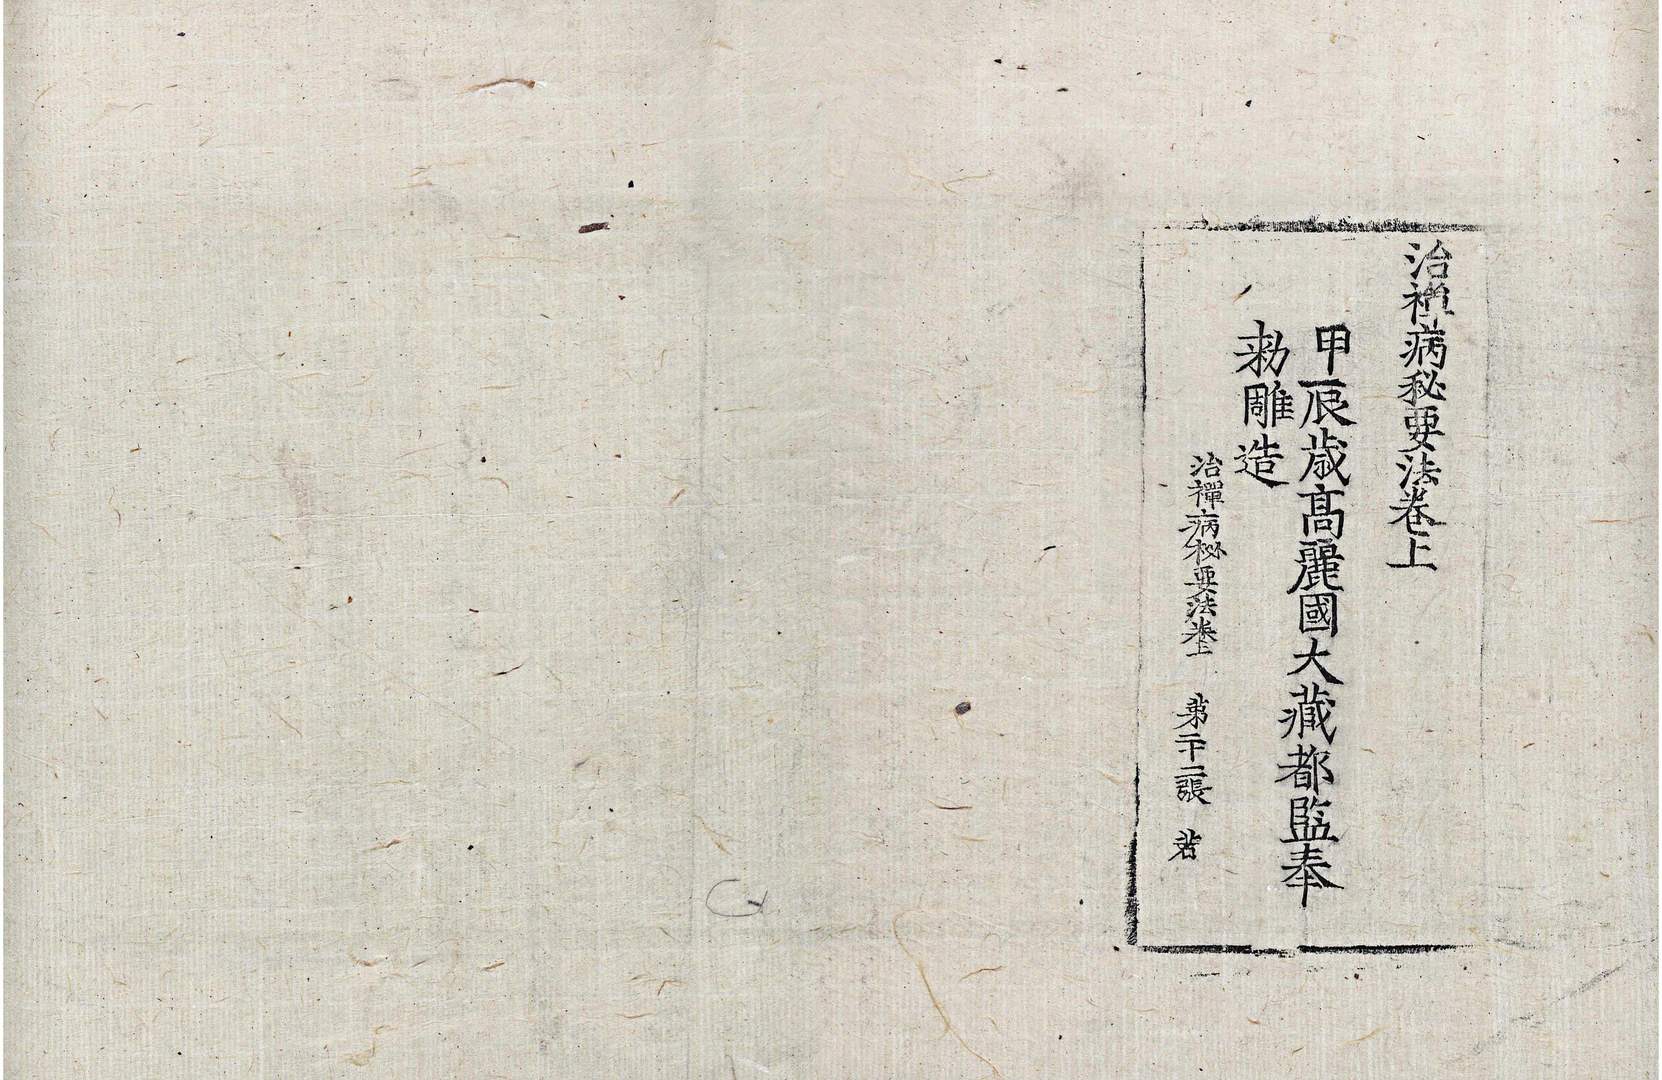 治禪病秘要法卷上
甲辰歲高麗國大藏都監奉
勅雕造
治禪病秘要法卷上 第二十二張 若